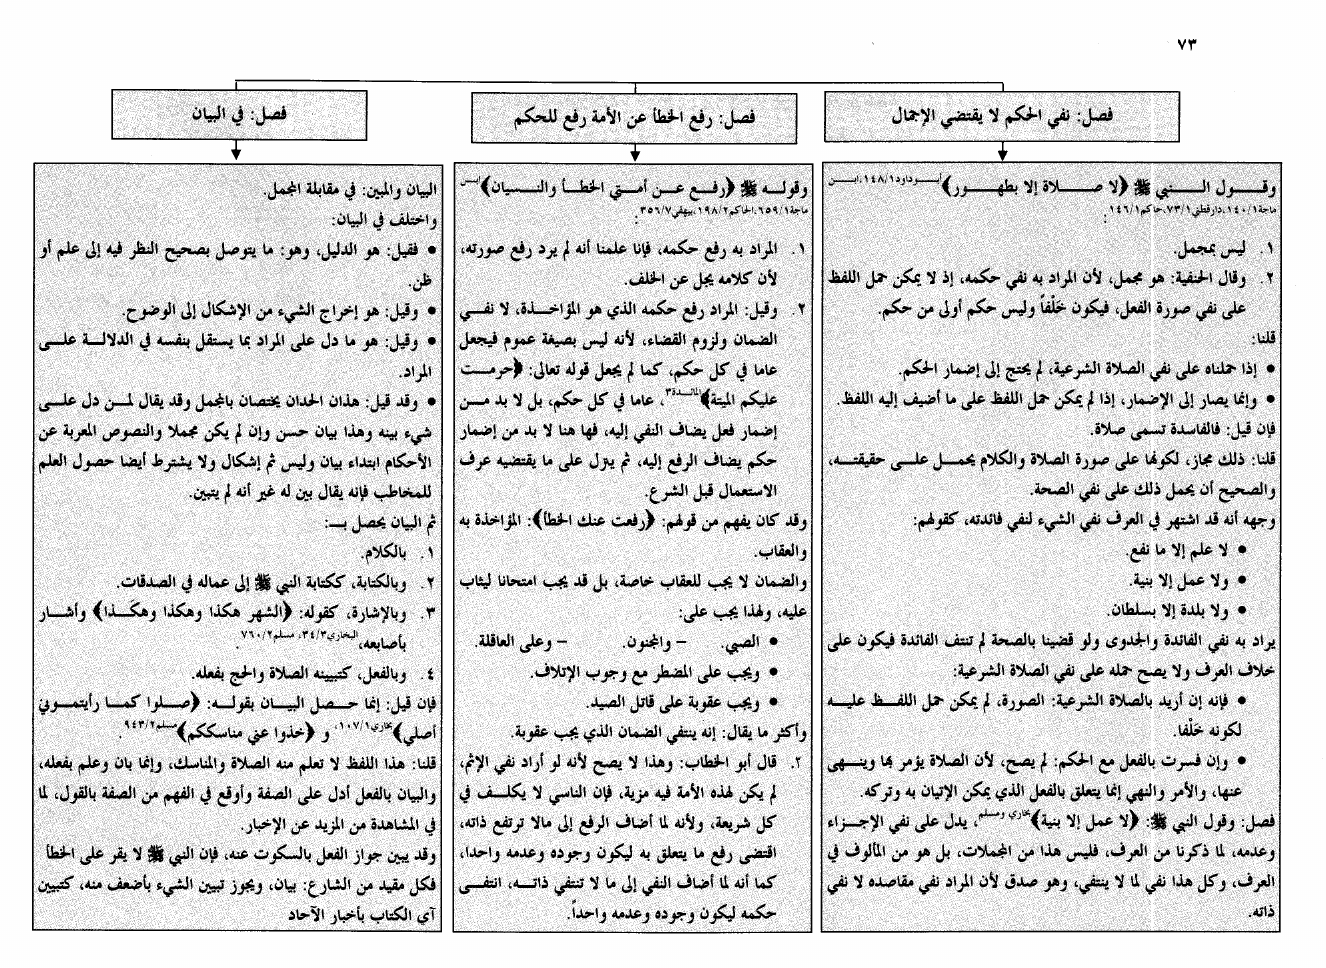 ٧٣
فصل: نفي الحكم لا يقتضي الإجمال
وقول النبي ﷺ ﴿لا صلاة إلا بطهور﴾ أبوداود١٤٨/١،ابن
ماجة١٤٠/١،دارقطني٧٣/١،حاكم١٤٦/١:
١. ليس بمجمل.
٢. وقال الحنفية: هو مجمل، لأن المراد به نفي حكمه، إذ لا يمكن حمل اللفظ
على نفي صورة الفعل، فيكون خَلْفاً وليس حكم أولى من حكم.
قلنا:
• إذا حملناه على نفي الصلاة الشرعية، لم يحتج إلى إضمار الحكم.
• وإنما يصار إلى الإضمار، إذا لم يمكن حمل اللفظ على ما أضيف إليه اللفظ.
فإن قيل: فالفاسدة تسمى صلاة.
قلنا: ذلك مجاز، لكونها على صورة الصلاة والكلام يحمل على حقيقته،
والصحيح أن يحمل ذلك على نفي الصحة.
وجهه أنه قد اشتهر في العرف نفي الشيء لنفي فائدته، كقولهم:
• لا علم إلا ما نفع.
• ولا عمل إلا بنية.
• ولا بلدة إلا بسلطان.
يراد به نفي الفائدة والجدوى ولو قضينا بالصحة لم تنتف الفائدة فيكون على
خلاف العرف ولا يصح حمله على نفي الصلاة الشرعية:
• فإنه إن أريد بالصلاة الشرعية: الصورة، لم يمكن حمل اللفظ عليه
لكونه خَلْفا.
• وإن فسرت بالفعل مع الحكم: لم يصح، لأن الصلاة يؤمر بها وينهى
عنها، والأمر والنهي إنما يتعلق بالفعل الذي يمكن الإتيان به وتركه.
فصل: وقول النبي ﷺ: ﴿لا عمل إلا بنية﴾ بخاري ومسلم، يدل على نفي الإجزاء
وعدمه، لما ذكرنا من العرف، فليس هذا من المجملات، بل هو من المألوف في
العرف، وكل هذا نفي لما لا ينتفي، وهو صدق لأن المراد نفي مقاصده لا نفي
ذاته.
فصل: رفع الخطأ عن الأمة رفع للحكم
وقوله ﷺ ﴿رفع عن أمتي الخطأ والنسيان﴾ ابن
ماجة٦٥٩/١،الحاكم١٩٨/٢،بيهقي٣٥٦/٧:
١. المراد به رفع حكمه، فإنا علمنا أنه لم يرد رفع صورته،
لأن كلامه يجل عن الخلف.
٢. وقيل: المراد رفع حكمه الذي هو المؤاخذة، لا نفي
الضمان ولزوم القضاء، لأنه ليس بصيغة عموم فيجعل
عاما في كل حكم، كما لم يجعل قوله تعالى: ﴿حرمت
عليكم الميتة﴾ المائدة٣، عاما في كل حكم، بل لا بد من
إضمار فعل يضاف النفي إليه، فها هنا لا بد من إضمار
حكم يضاف الرفع إليه، ثم ينزل على ما يقتضيه عرف
الاستعمال قبل الشرع.
وقد كان يفهم من قولهم: ﴿رفعت عنك الخطأ﴾: المؤاخذة به
والعقاب.
والضمان لا يجب للعقاب خاصة، بل قد يجب امتحانا ليثاب
عليه، ولهذا يجب على:
• الصبي. – والمجنون. – وعلى العاقلة.
• ويجب على المضطر مع وجوب الإتلاف.
• ويجب عقوبة على قاتل الصيد.
وأكثر ما يقال: إنه ينتفي الضمان الذي يجب عقوبة.
٢. قال أبو الخطاب: وهذا لا يصح لأنه لو أراد نفي الإثم،
لم يكن لهذه الأمة فيه مزية، فإن الناسي لا يكلف في
كل شريعة، ولأنه لما أضاف الرفع إلى مالا ترتفع ذاته،
اقتضى رفع ما يتعلق به ليكون وجوده وعدمه واحدا،
كما أنه لما أضاف النفي إلى ما لا تنتفي ذاته، انتفى
حكمه ليكون وجوده وعدمه واحداً.
فصل: في البيان
البيان والمبين: في مقابلة المجمل.
واختلف في البيان:
• فقيل: هو الدليل، وهو: ما يتوصل بصحيح النظر فيه إلى علم أو
ظن.
• وقيل: هو إخراج الشيء من الإشكال إلى الوضوح.
• وقيل: هو ما دل على المراد بما يستقل بنفسه في الدلالة على
المراد.
• وقد قيل: هذان الحدان يختصان بالمجمل وقد يقال لمن دل على
شيء بينه وهذا بيان حسن وإن لم يكن مجملا والنصوص المعربة عن
الأحكام ابتداء بيان وليس ثم إشكال ولا يشترط أيضا حصول العلم
للمخاطب فإنه يقال بين له غير أنه لم يتبين.
ثم البيان يحصل بـ:
١. بالكلام.
٢. وبالكتابة، ككتابة النبي ﷺ إلى عماله في الصدقات.
٣. وبالإشارة، كقوله: ﴿الشهر هكذا وهكذا وهكذا﴾ وأشار
بأصابعه، البخاري٣٤/٣، مسلم٧٦٠/٢.
٤. وبالفعل، كتبيينه الصلاة والحج بفعله.
فإن قيل: إنما حصل البيان بقوله: ﴿صلوا كما رأيتموني
أصلي﴾ بخاري١٠٧/١، و ﴿خذوا عني مناسككم﴾ مسلم٩٤٣/٢.
قلنا: هذا اللفظ لا تعلم منه الصلاة والمناسك، وإنما بان وعلم بفعله،
والبيان بالفعل أدل على الصفة وأوقع في الفهم من الصفة بالقول، لما
في المشاهدة من المزيد عن الإخبار.
وقد يبين جواز الفعل بالسكوت عنه، فإن النبي ﷺ لا يقر على الخطأ
فكل مقيد من الشارع: بيان، ويجوز تبيين الشيء بأضعف منه، كتبيين
آي الكتاب بأخبار الآحاد